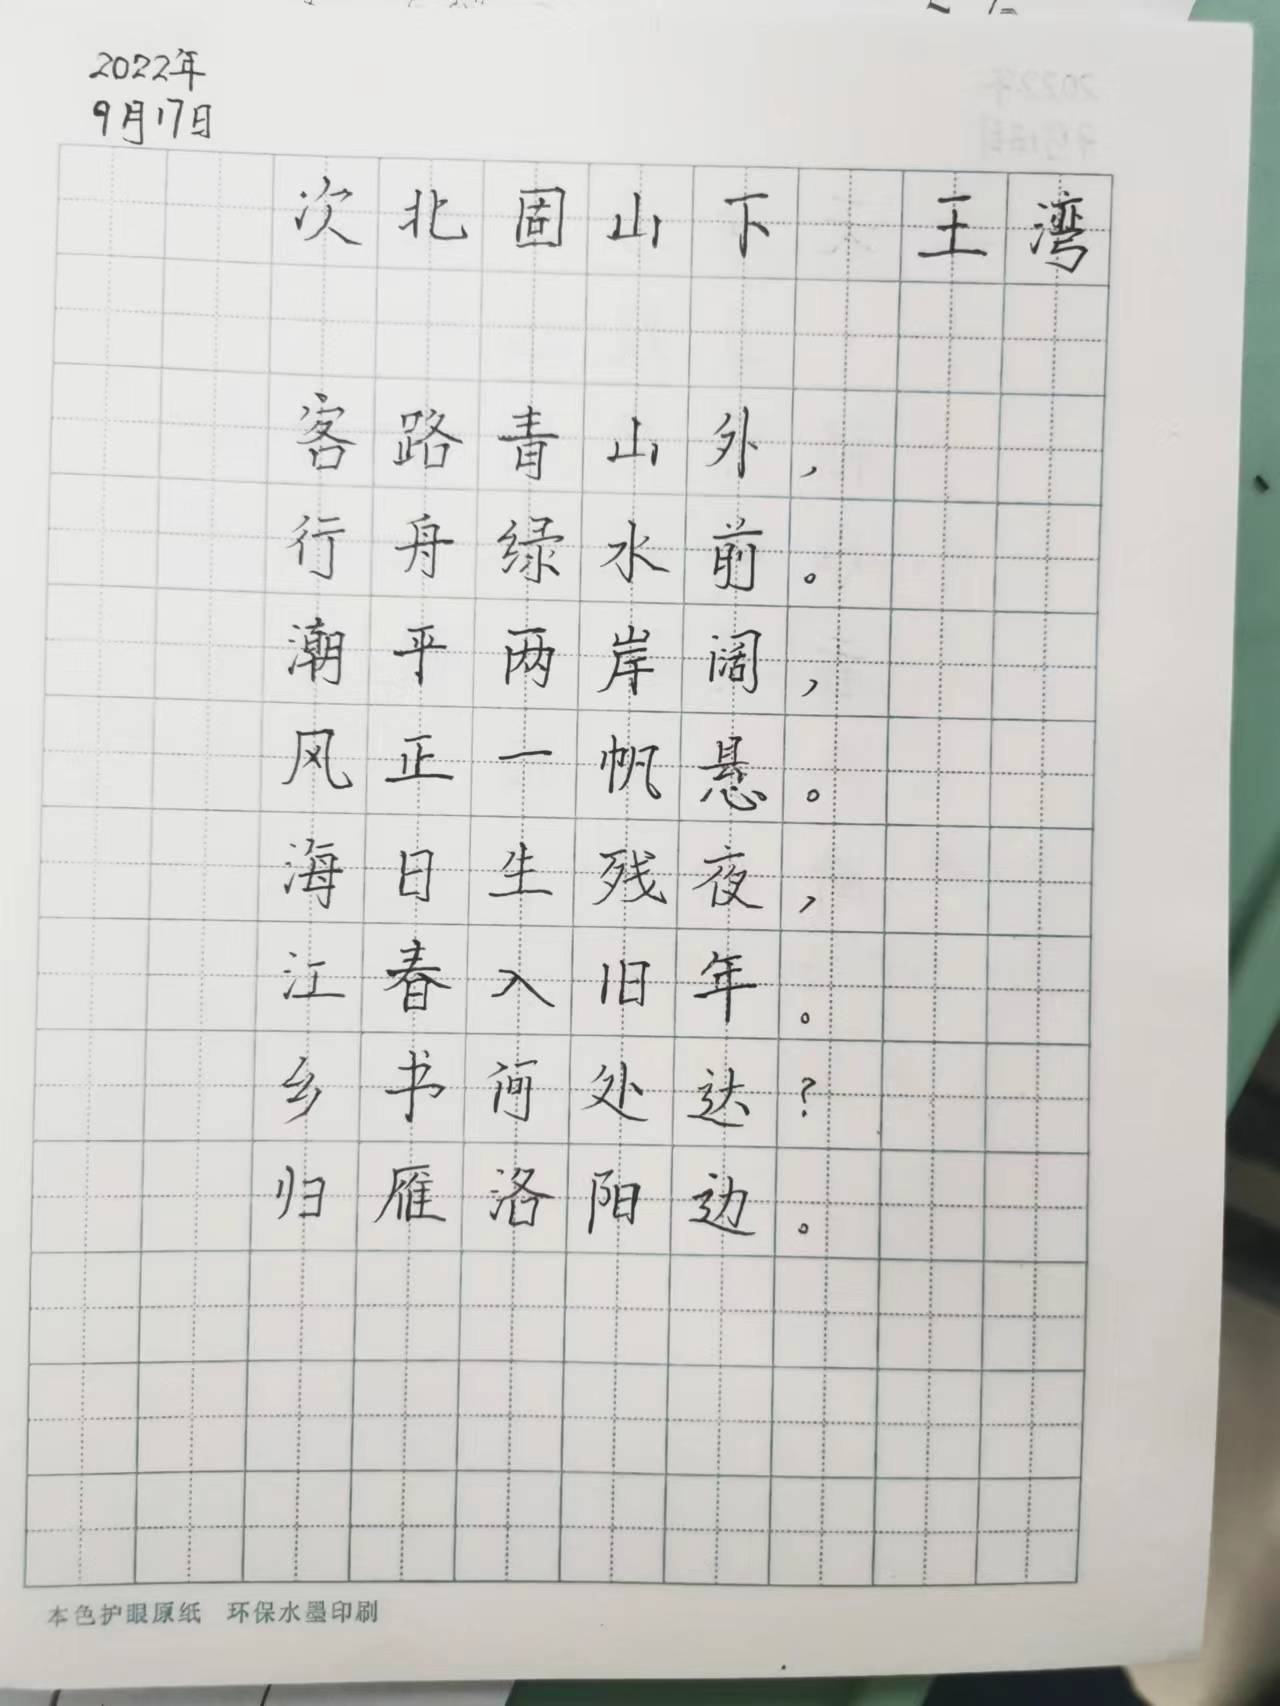 2022年
9月17日
次北固山下 王湾
客路青山外，
行舟绿水前。
潮平两岸阔，
风正一帆悬。
海日生残夜，
江春入旧年。
乡书何处达？
归雁洛阳边。
本色护眼原纸 环保水墨印刷